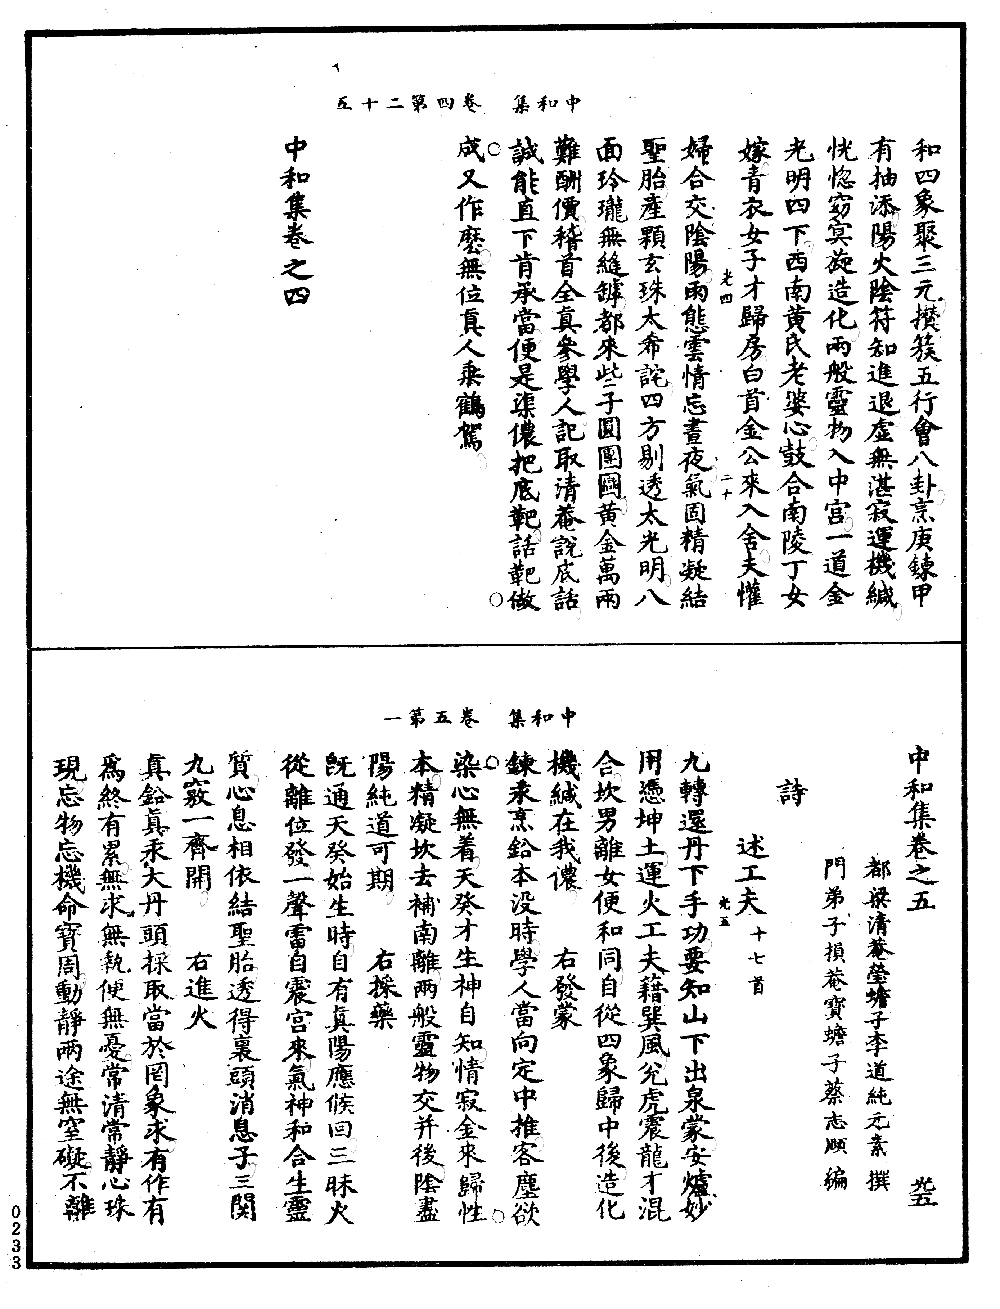 中和集　卷四第二十五
和四象聚三元攅簇五行會八卦烹庚鍊甲
有抽添陽火陰符知進退虛無湛寂運機緘
恍惚窈冥旋造化兩般靈物入中宮一道金
光明四下西南黃氏老婆心鼓合南陵丁女
嫁青衣女子才歸房白首金公來入舍夫懽
光四　二十
婦合交陰陽雨態雲情忘晝夜氣固精凝結
聖胎產顆玄珠太希詫四方剔透太光明八
面玲瓏無縫罅都來些子圓團圞黃金萬兩
難酬價稽首全真參學人記取清菴說底話
誠能直下肯承當便是渠儂把底靶話靶做
成又作麼無位真人乘鶴駕
中和集卷之四
中和集　卷五第一
中和集卷之五
都梁清菴瑩蟾子李道純元素　撰　光五
門弟子損菴寶蟾子蔡志頤　編
詩
述工夫　十七首
光五
九轉還丹下手功要知山下出泉蒙安爐妙
用憑坤土運火工夫藉巽風兌虎震龍才混
合坎男離女便和同自從四象歸中後造化
機緘在我儂　右發蒙
鍊汞烹鉛本沒時學人當向定中推客塵欲
染心無着天癸才生神自知情寂金來歸性
本精凝坎去補南離兩般靈物交并後陰盡
陽純道可期　右採藥
旣通天癸始生時自有真陽應候回三昧火
從離位發一聲雷自震宮來氣神和合生靈
質心息相依結聖胎透得裏頭消息子三關
九竅一齊開　右進火
真鉛真汞大丹頭採取當於罔象求有作有
爲終有累無求無執便無憂常清常靜心珠
現忘物忘機命寶周動靜兩途無窒礙不離
0233